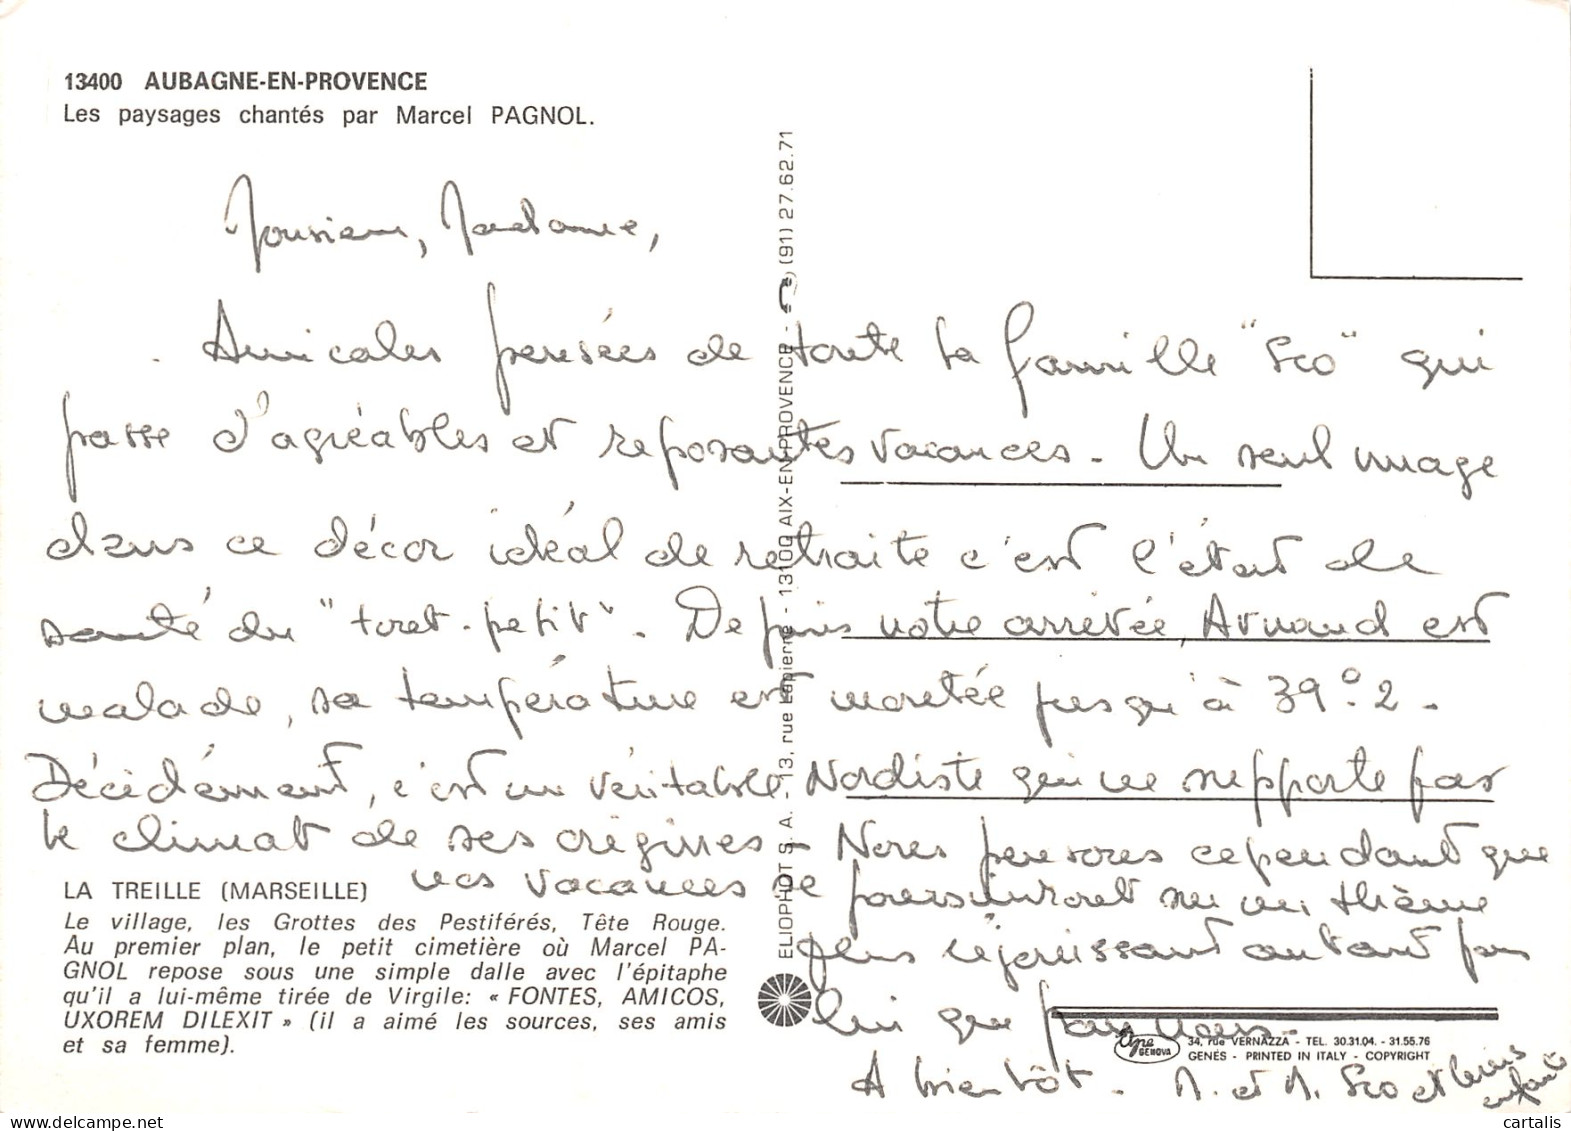 13400 AUBAGNE-EN-PROVENCE
Les paysages chantés par Marcel PAGNOL.
Monsieur, Madame,
Amicales pensées de toute la famille "Sco" qui
passe d'agréables et reposantes vacances - Un seul nuage
dans ce décor idéal de retraite c'est l'état de
santé du "tout-petit". Depuis notre arrivée, Arnaud est
malade, sa température est montée jusqu'à 39°.2 -
Décidément, c'est un véritable Nordiste qui ne supporte pas
le climat de ses origines - Nous pensons cependant que
nos vacances se poursuivront sur un thème
plus réjouissant autant pour
lui que pour nous -
A bientôt - M. et M. Sco et leurs
enfants
LA TREILLE (MARSEILLE)
Le village, les Grottes des Pestiférés, Tête Rouge.
Au premier plan, le petit cimetière où Marcel PA-
GNOL repose sous une simple dalle avec l'épitaphe
qu'il a lui-même tirée de Virgile: « FONTES, AMICOS,
UXOREM DILEXIT » (il a aimé les sources, ses amis
et sa femme).
ELIOPHOT S. A. - 13, rue Lapierre - 13100 AIX-EN-PROVENCE - (91) 27.62.71
GENOVA
34, rue VERNAZZA - TEL. 30.31.04. - 31.55.76
GENÉS - PRINTED IN ITALY - COPYRIGHT
cartalis